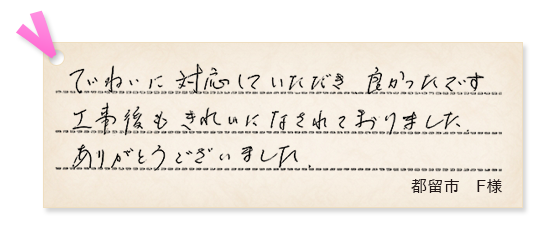 ていねいに対応していただき 良かったです
工事後もきれいになされておりました
ありがとうございました.
都留市　F様